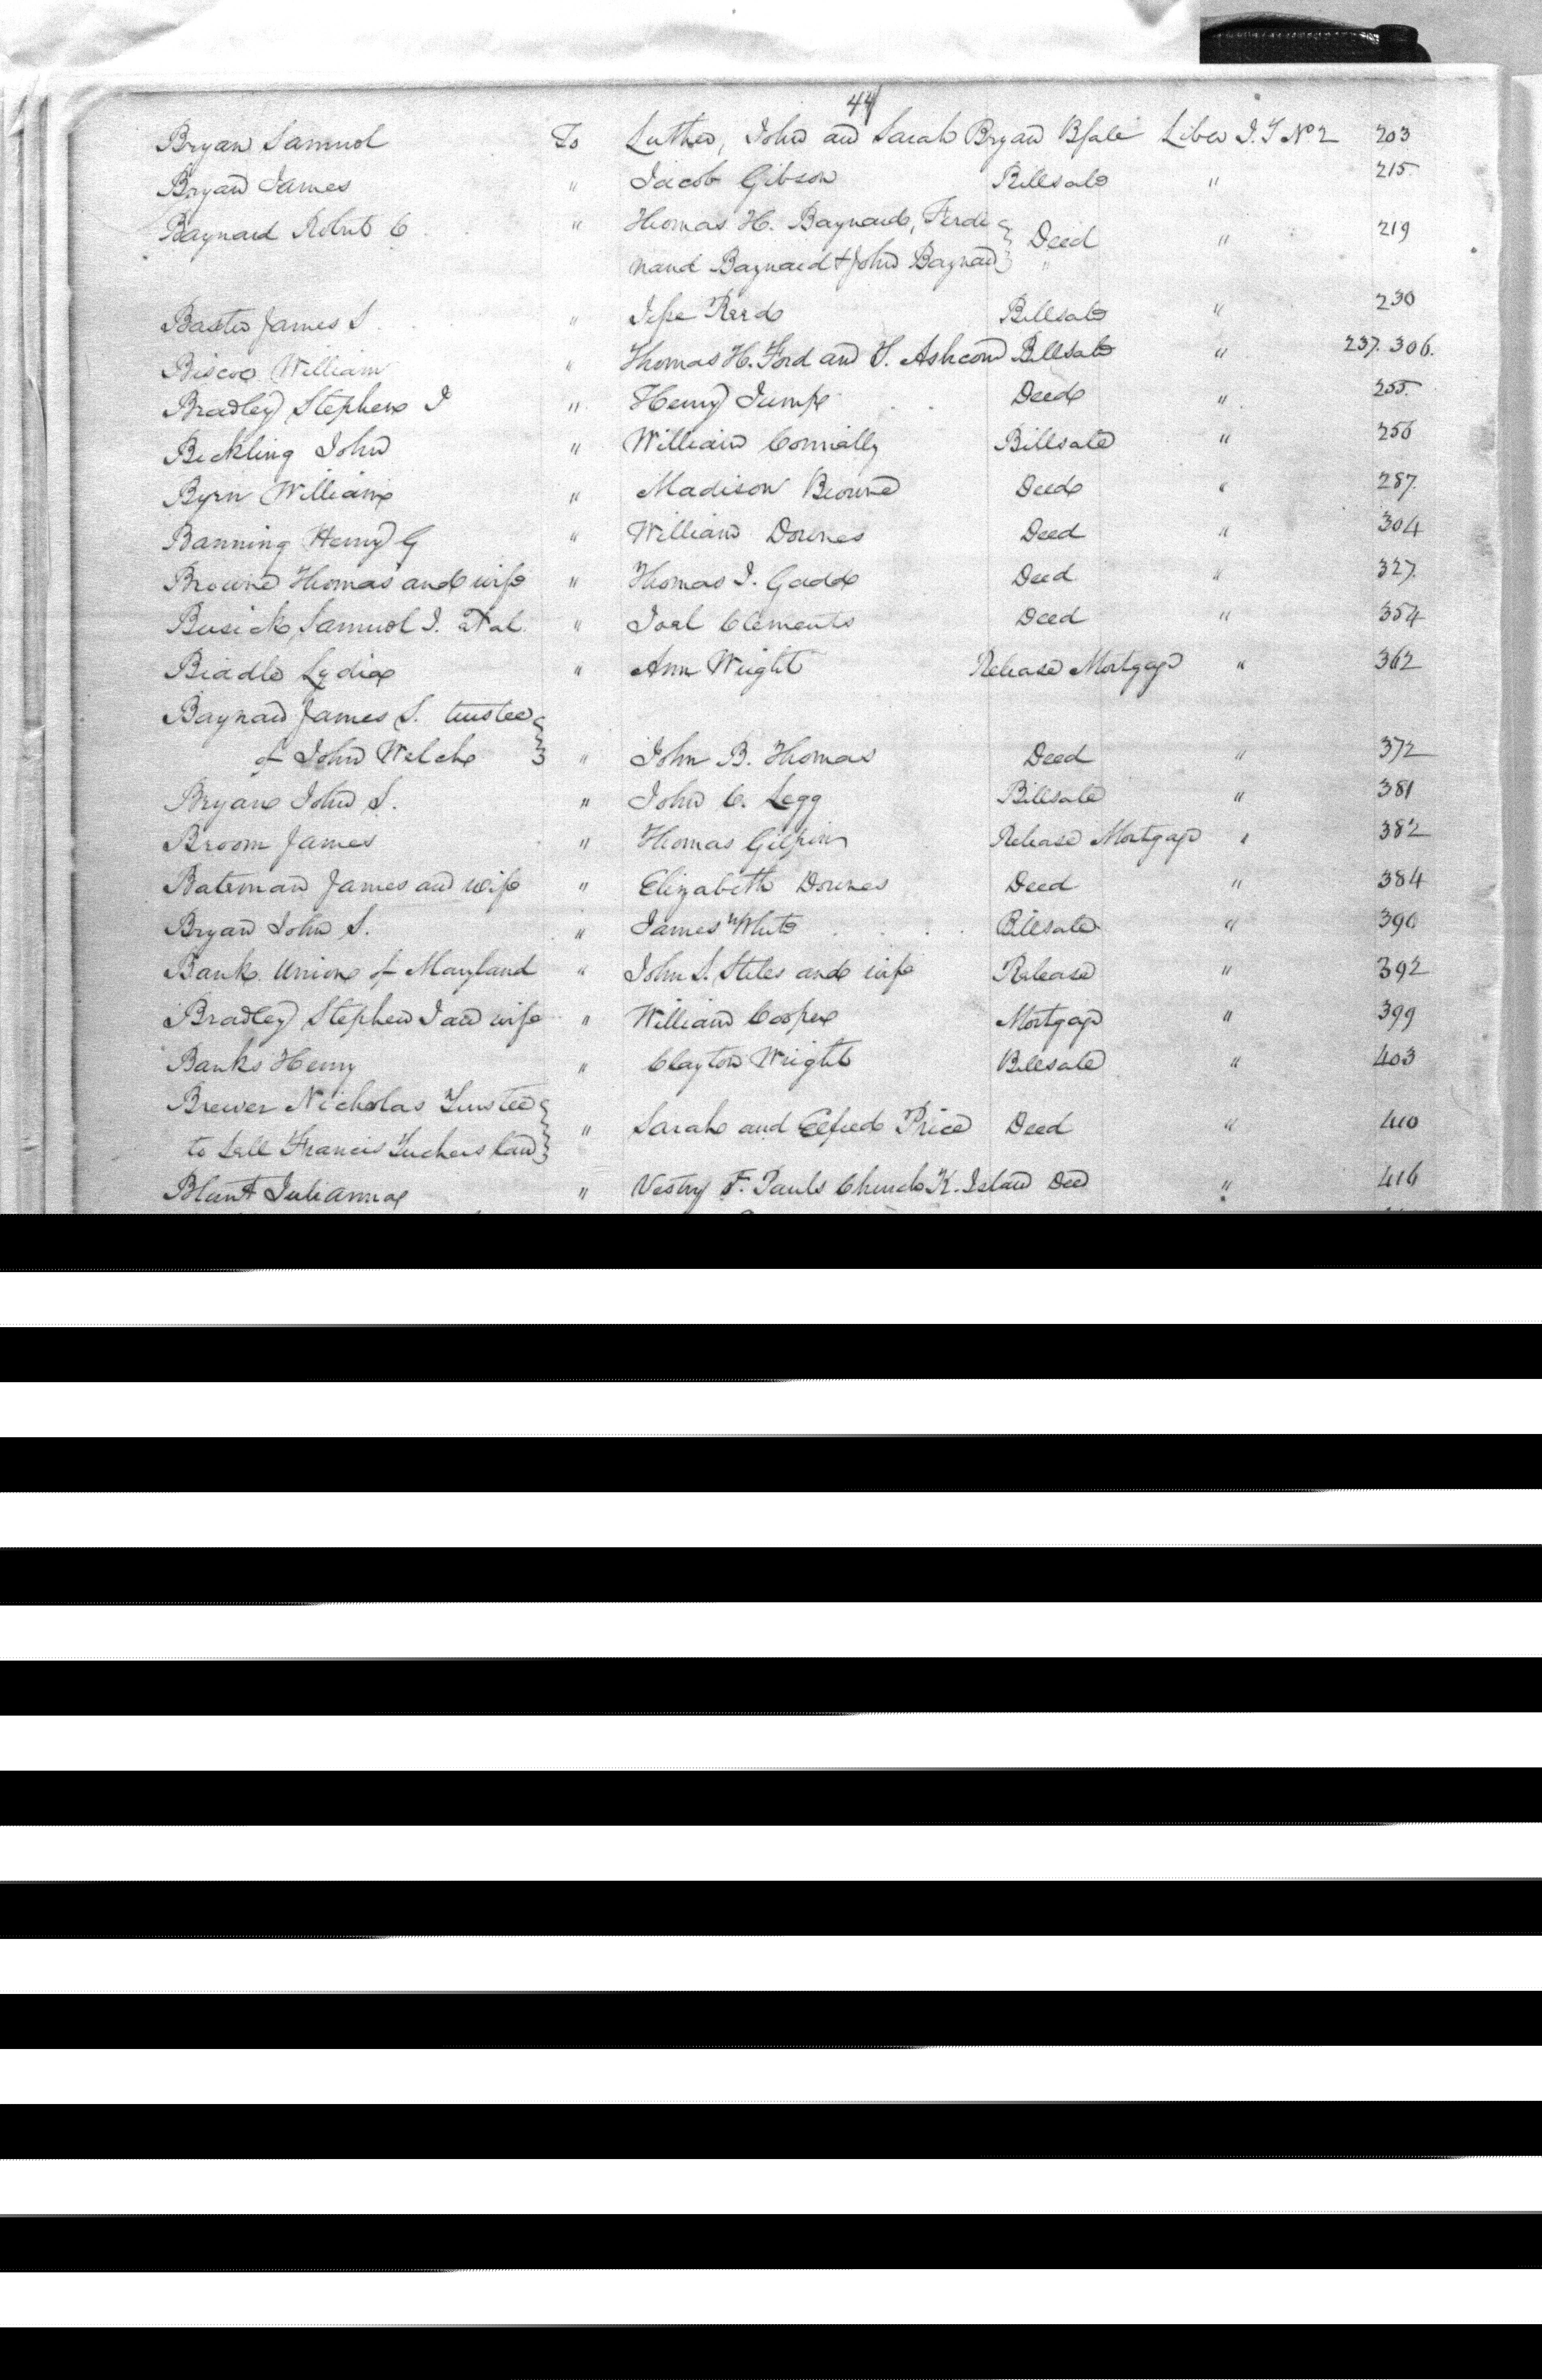 44
Bryan Samuel To Luther, John and Sarah Bryan Bsale Liber I.T No 2 203
Bryan James " Jacob Gibson Billsale " 215
Baynard Robert C " Thomas H. Baynard, Ferdi } Deed " 219
nand Baynard & John Baynard }
Baxter James S. " Jesse Reed Billsale " 230
Biscoe William " Thomas H. Ford and T. Ashcom Billsale " 237. 306.
Bradley Stephen I " Henry Jump Deed " 255
Beckling John " William Connally Billsale " 256
Byrn William " Madison Browne Deed " 287.
Banning Henry G " William Downes Deed " 304
Browne Thomas and wife " Thomas I. Gadd Deed " 327.
Busick Samuel I. et al. " Joel Clements Deed " 354
Biddle Lydia " Ann Wright Release Mortgage " 362
Baynard James S. trustee }
of John Welch } " John B. Thomas Deed " 372
Bryan John S. " John C. Legg Billsale " 381
Broom James " Thomas Gilpin Release Mortgage " 382
Bateman James and wife " Elizabeth Downes Deed " 384
Bryan John S. " James White Billsale " 390
Bank Union of Maryland " John S. Stiles and wife Release " 392
Bradley Stephen I and wife " William Cooper Mortgage " 399
Banks Henry " Clayton Wright Billsale " 403
Brewer Nicholas Trustee } " Sarah and Price Deed " 410
to Sell Francis Tuckers land }
Blunt Julianna " Vestry St. Pauls Church K. Island Deed " 416